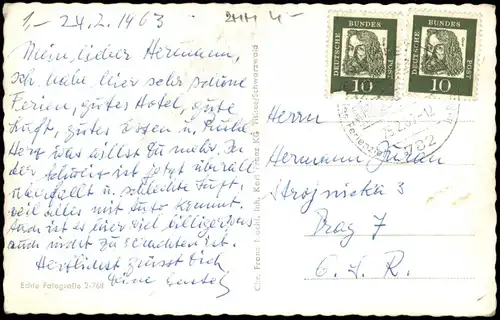 1- 24.2.1963
4-
Mein lieber Hermann,
ich habe hier sehr schöne
Ferien, gutes Hotel, gute
Luft, gutes Essen u. Ruhe
Herz was willst Du mehr. In
der Schweiz ist jetzt überall
überfüllt u. schlechte Luft,
weil alles mit Auto kommt.
Auch ist es hier viel billiger was
auch nicht zu verachten ist.
Herzlichst grüsst Dich
Deine
Echte Fotografie 2-768
Chr. Franz Inh. Karl Franz KG
DEUTSCHE BUNDES POST
10
DEUTSCHE BUNDES POST
10
782
Herrn
Hermann Juran
Strojnická 3
Prag 7
Č.S.R.